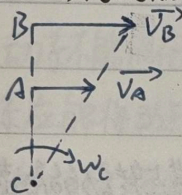 B V_B
A V_A
W_c
C